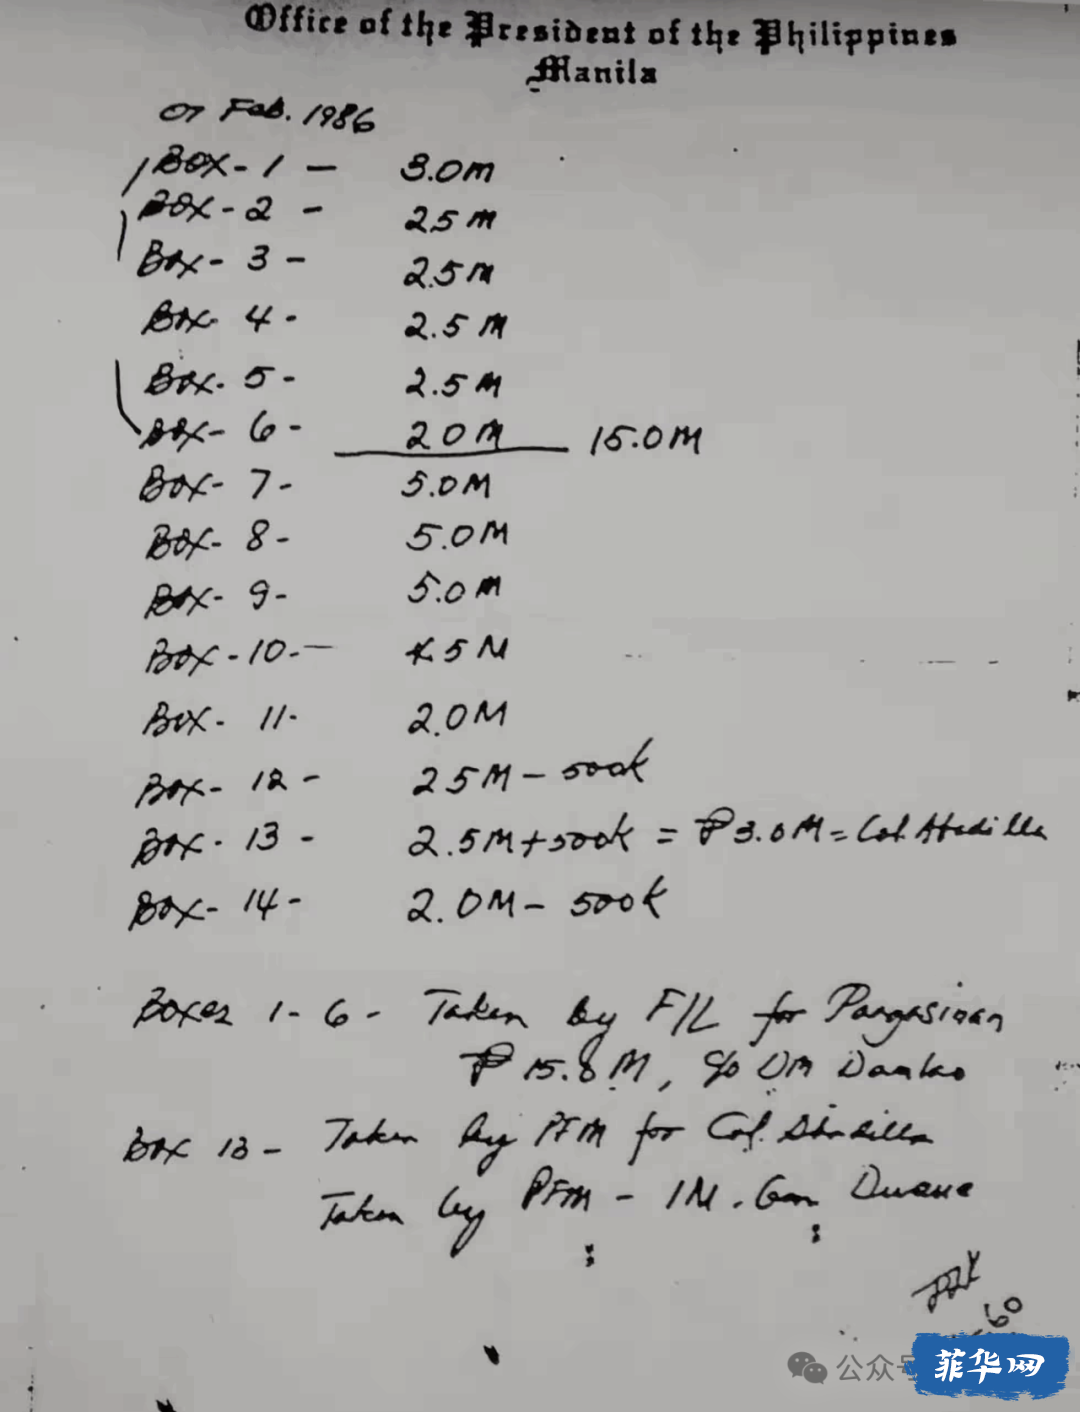 Office of the President of the Philippines
Manila
07 Feb. 1986
Box - 1 - 3.0m
Box - 2 - 2.5 m
Box - 3 - 2.5 m
Box - 4 - 2.5 M
Box - 5 - 2.5 M
Box - 6 - 2.0 M 15.0M
Box - 7 - 5.0M
Box - 8 - 5.0M
Box - 9 - 5.0 M
Box - 10 - 5 M
Box - 11 - 2.0M
Box - 12 - 2.5M - 500k
Box - 13 - 2.5M + 500k = ₱3.0M = Col. Abadilla
Box - 14 - 2.0M - 500k
Boxes 1 - 6 - Taken by F/L for Pangasinan
₱ 15.8 M, c/o DM
Box 13 - Taken by PFM for Col. Abadilla
Taken by PFM - 1M. Gen
公众号
菲华网